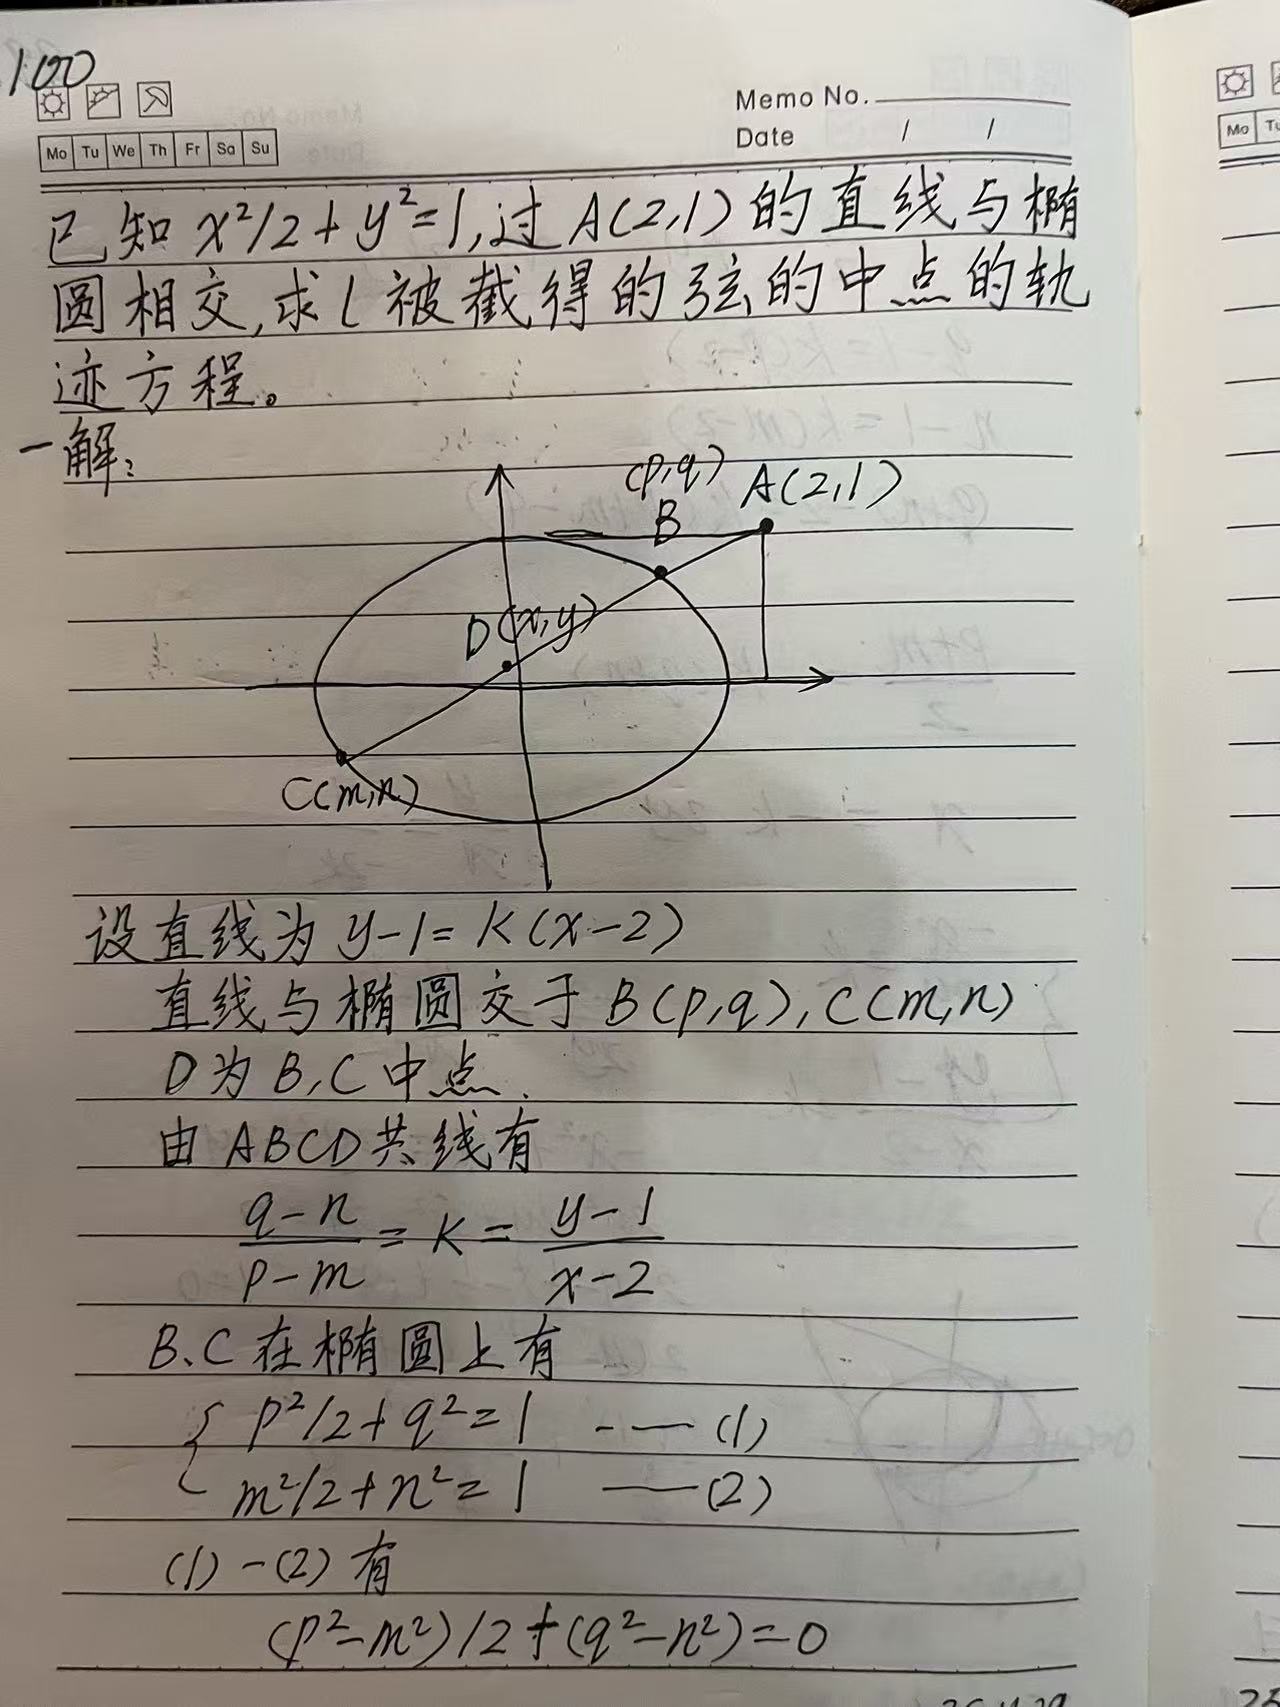 100
Memo No.
Date / /
Mo Tu We Th Fr Sa Su
Mo
已知 x²/2+y²=1,过A(2,1)的直线与椭
圆相交,求l被截得的弦的中点的轨
迹方程。
一解:
(p,q)
A(2,1)
B
D(x,y)
C(m,n)
设直线为 y-1=k(x-2)
直线与椭圆交于B(p,q),C(m,n)
D为B,C中点.
由ABCD共线有
q-n/p-m = k = y-1/x-2
B、C在椭圆上有
{ p²/2+q²=1 ——(1)
m²/2+n²=1 ——(2)
(1)-(2)有
(p²-m²)/2+(q²-n²)=0